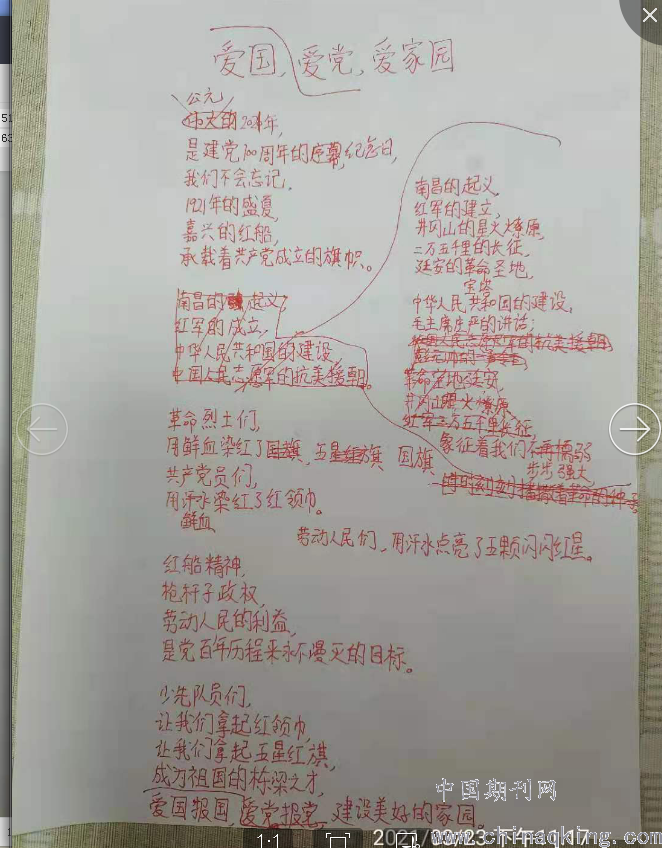 爱国,爱党,爱家园
公元
伟大的2021年,
是建党100周年的序幕纪念日,
我们不会忘记,
1921年的盛夏,
嘉兴的红船,
承载着共产党成立的旗帜。
南昌的起义
红军的成立,
中华人民共和国的建设,
中国人民志愿军的抗美援朝。
南昌的起义,
红军的建立,
井冈山的星火燎原,
二万五千里的长征,
延安的革命圣地,
中华人民共和国的建设,
毛主席庄严的讲话;
革命圣地延安,
井冈山星火燎原,
红军二万五千里长征,
象征着我们不再懦弱
步步强大,
革命烈士们,
用鲜血染红了国旗,五星红旗 国旗
共产党员们,
用汗水染红了红领巾。
鲜血
劳动人民们,用汗水点亮了五颗闪闪红星。
红船精神,
枪杆子政权,
劳动人民的利益,
是党百年历程来永不漫灭的目标。
少先队员们,
让我们拿起红领巾,
让我们拿起五星红旗,
成为祖国的栋梁之才,
爱国报国,爱党报党,建设美好的家园。
中国期刊网
1:1
2021/03/23 下午11:17
www.chinaqking.com
51
63